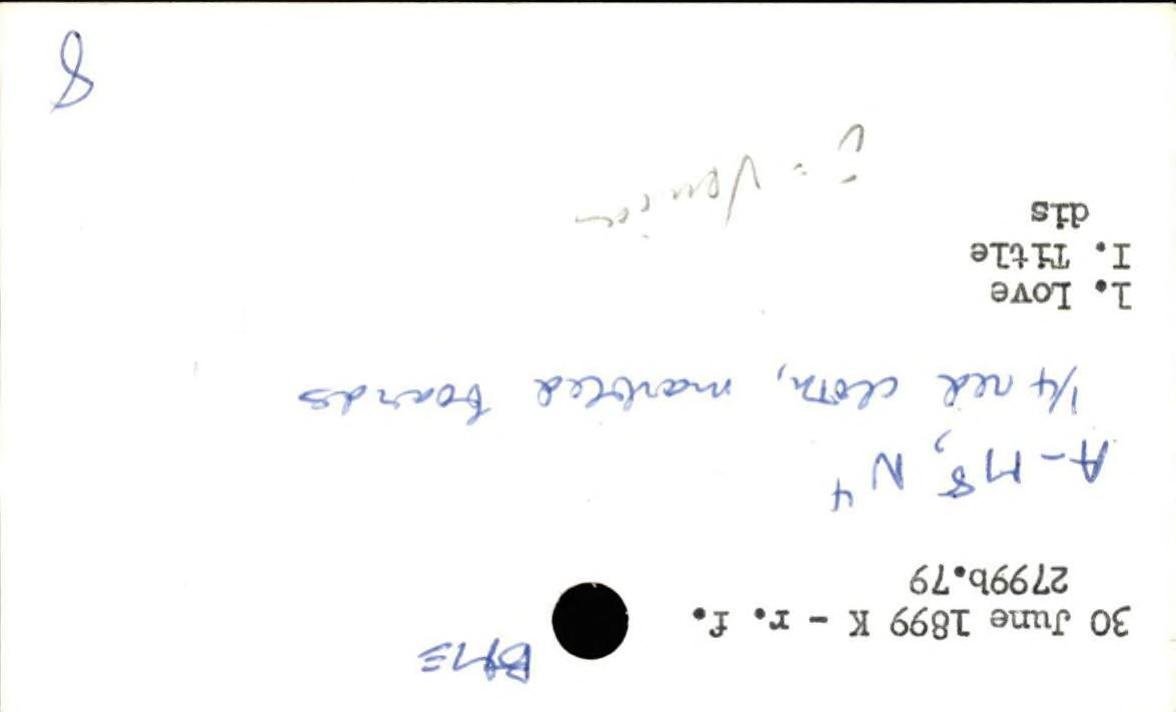 30 June 1899 K - r. f.
2799b.79
A-M⁸, N⁴
1/4 red cloth, marbled boards
1. Love
I. Title
dis
8